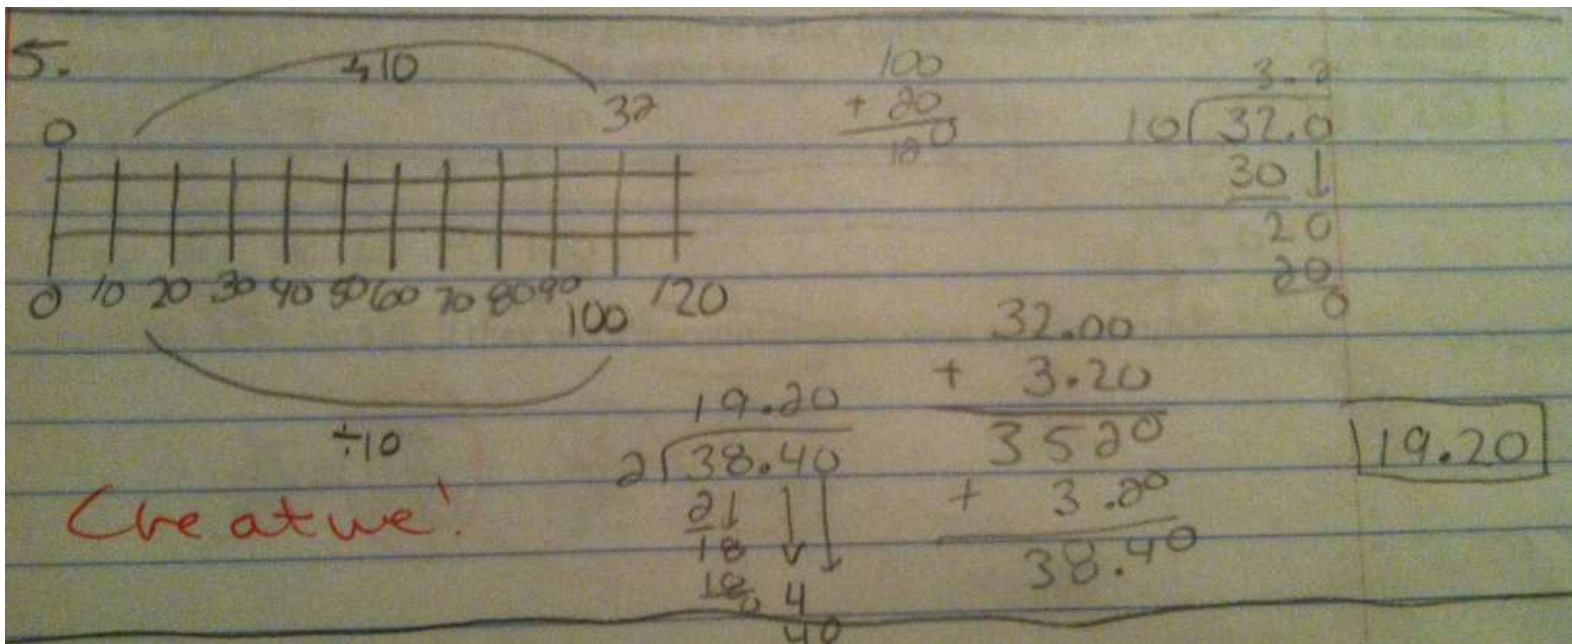 5.
÷10
0
32
0 10 20 30 40 50 60 70 80 90 100 120
÷10
Creative!
100
+ 20
120
3.2
10 32.0
30
20
20
0
32.00
+ 3.20
3520
+ 3.20
38.40
19.20
2 38.40
2
18
18
0 4
40
19.20